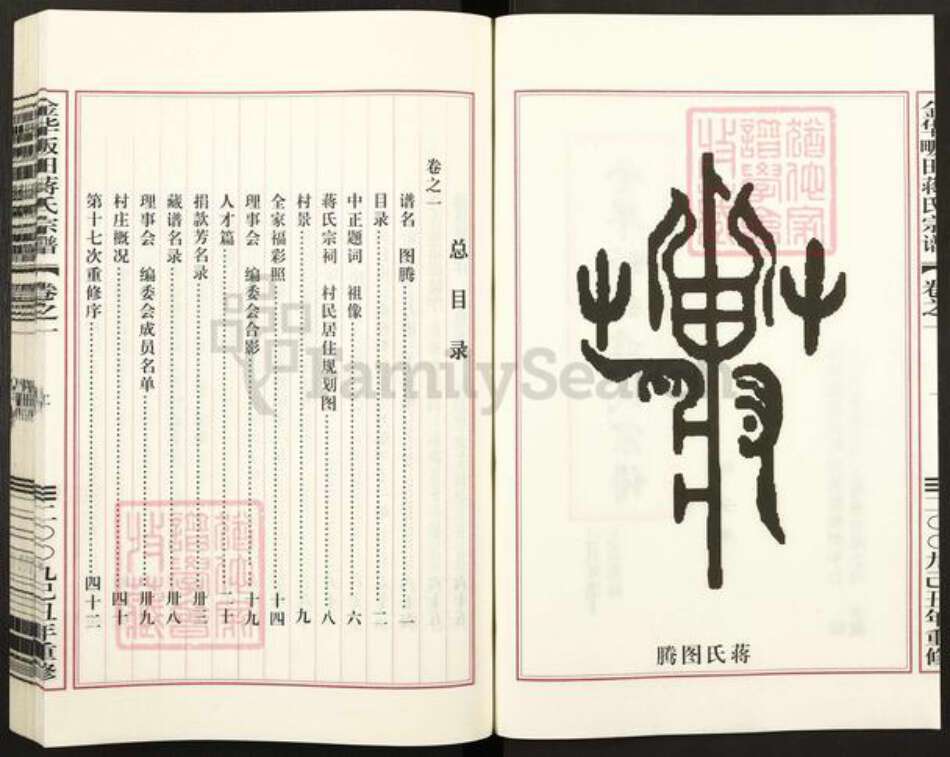 总目录
卷之一
谱名 图腾 一
目录 二
中正题词 祖像 六
蒋氏宗祠 村民居住规划图 八
村景 九
全家福彩照 十四
理事会 编委会合影 十九
人才篇 二十
捐款芳名录 卅三
藏谱名录 卅八
理事会 编委会成员名单 卅九
村庄概况 四十
第十七次重修序 四十二
蒋氏图腾
金华畈田蒋氏宗谱【卷之一
二〇〇九己丑年重修
金华畈田蒋氏宗谱【卷之一
二〇〇九己丑年重修
FamilySearch